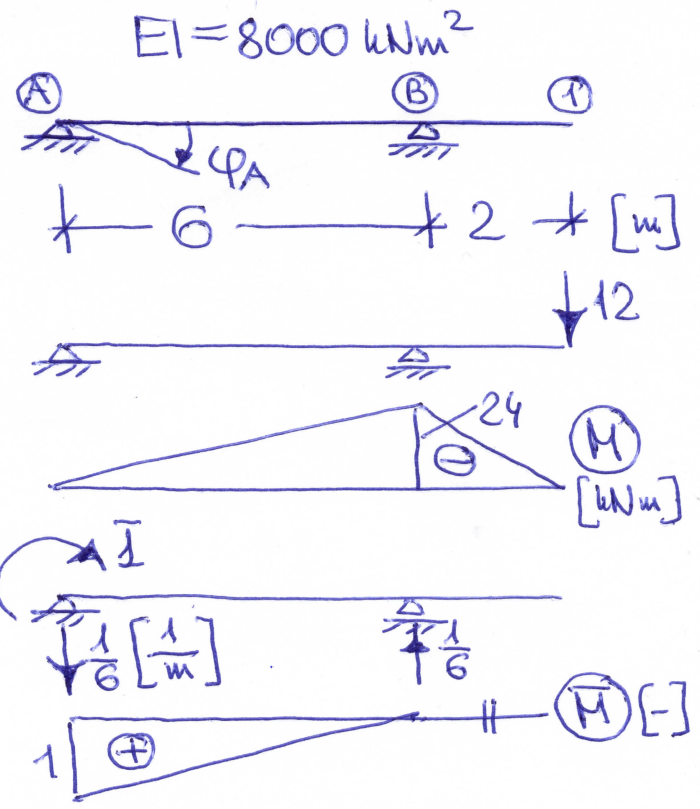 EI = 8000 kNm²
A B 1
φA
6 2 [m]
12
24
M
⊖
[kNm]
1̅
1/6 [1/m] 1/6
M̅ [-]
1 ⊕